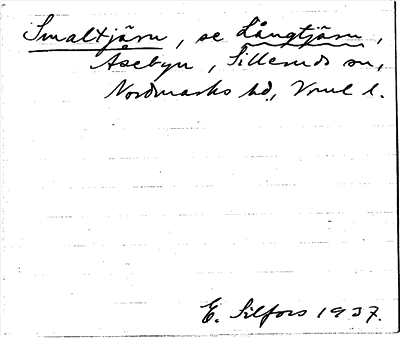 Smaltjärn, se Långtjärn,
Åsebyn, Silleruds sn,
Nordmarks hd, Vrml l.
E. Silfors 1937.